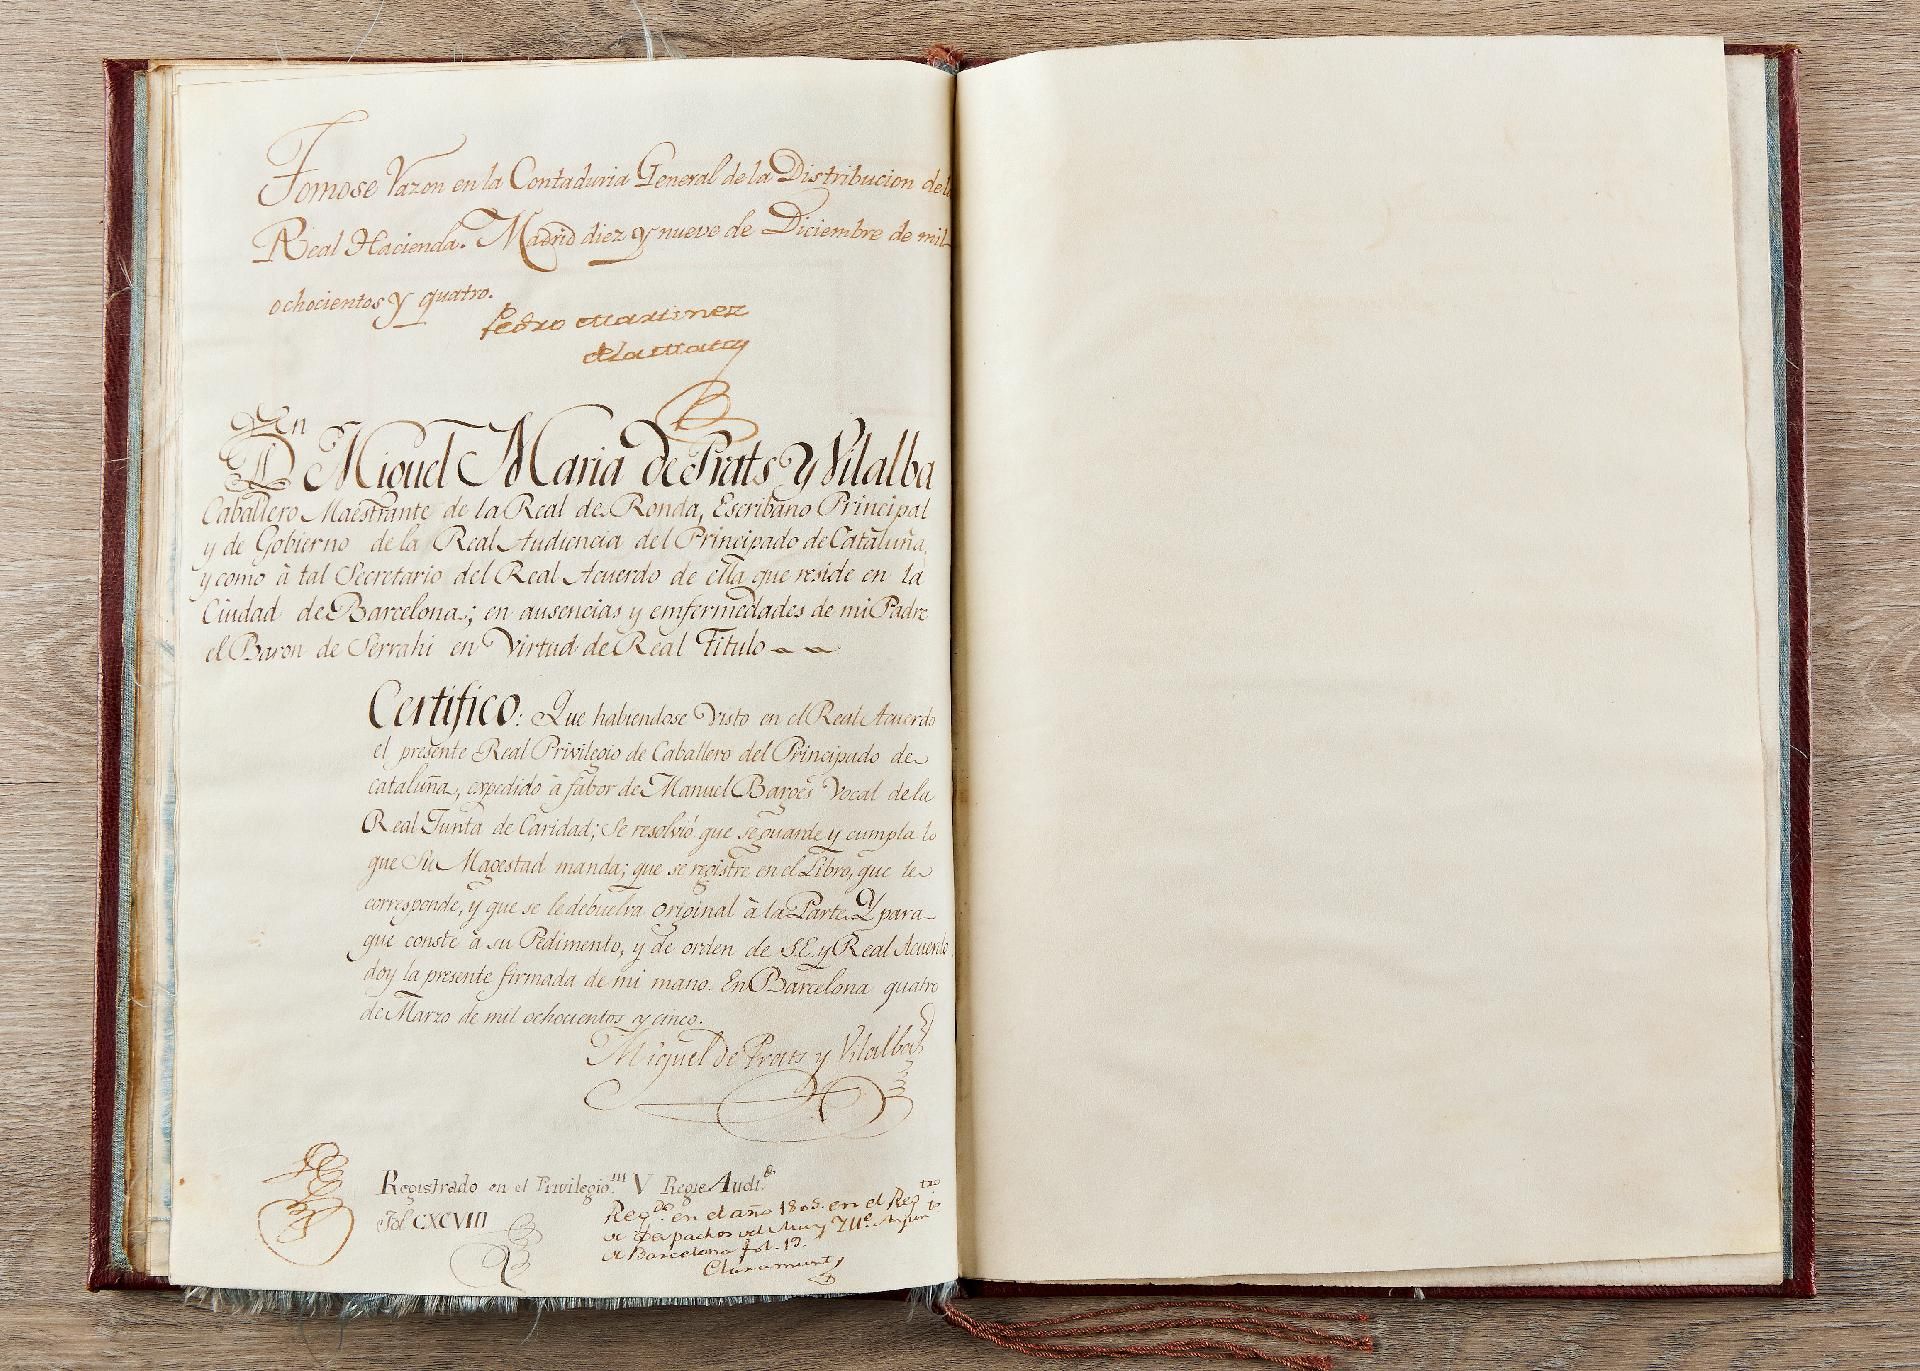 Tomose razon en la Contaduria General de la Distribucion de la
Real Hacienda. Madrid diez y nueve de Diciembre de mil
ochocientos y quatro.
Pedro Martinez
de la Mata
Dn Miguel Maria de Prats y Vilalba
Caballero Maestrante de la Real de Ronda, Escribano Principal
y de Gobierno de la Real Audiencia del Principado de Cataluña,
y como à tal Secretario del Real Acuerdo de ella que reside en la
Ciudad de Barcelona; en ausencias y emfermedades de mi Padre
el Baron de Serrahi en Virtud de Real Titulo
Certifico: Que habiendose Visto en el Real Acuerdo
el presente Real Privilegio de Caballero del Principado de
cataluña, expedido à fabor de Manuel Barges Vocal de la
Real Junta de Caridad; Se resolvió que se guarde y cumpla lo
que Su Magestad manda; que se registre en el Libro, que le
corresponde, y que se le debuelva original à la Parte. Y para
que conste à su Pedimento, y de orden de S.E. y Real Acuerdo
doy la presente firmada de mi mano. En Barcelona quatro
de Marzo de mil ochocientos y cinco.
Miguel de Prats y Vilalba
Registrado en el Privilegio.m V Regie Audi.e
Fol. CXCVIII
Reg.do en el año 1805. en el Regtro
de Despachos del Muy Ill.e Ayun.to
de Barcelona fol. 13.
Claramunt